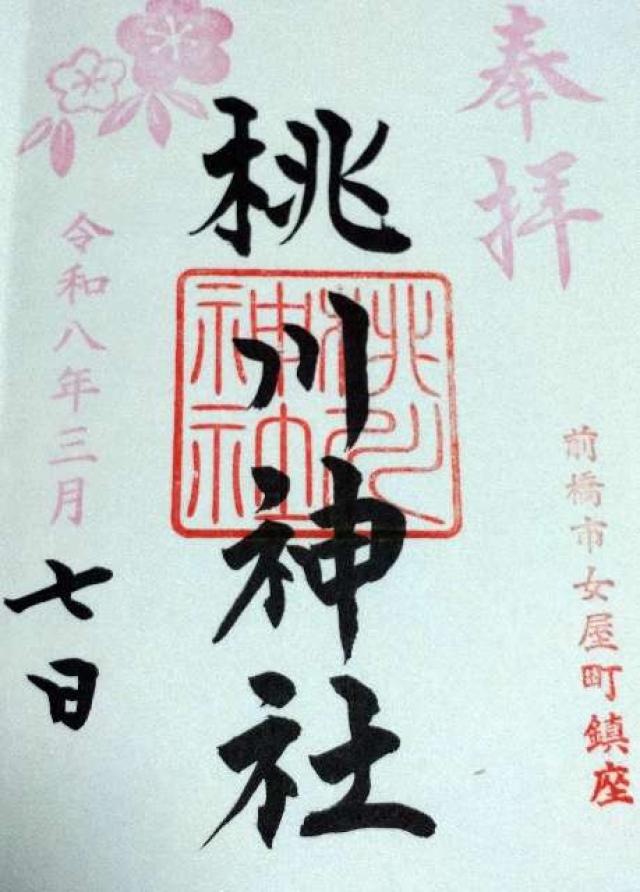 奉拝
前橋市女屋町鎮座
桃川神社
桃川神社
令和八年三月
七日